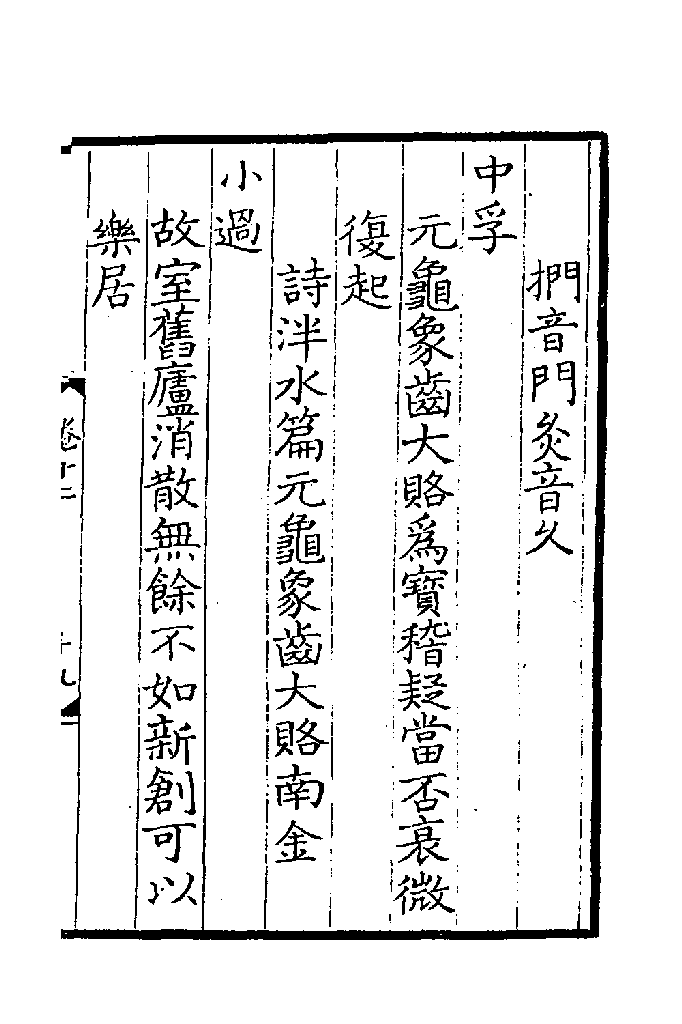 捫音門灸音久
中孚
元龜象齒大賂爲寶稽疑當否衰微
復起
詩泮水篇元龜象齒大賂南金
小過
故室舊廬消散無餘不如新創可以
樂居
卷十二
十九